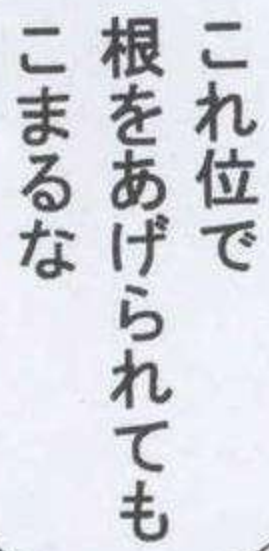 これ位で
根をあげられても
こまるな